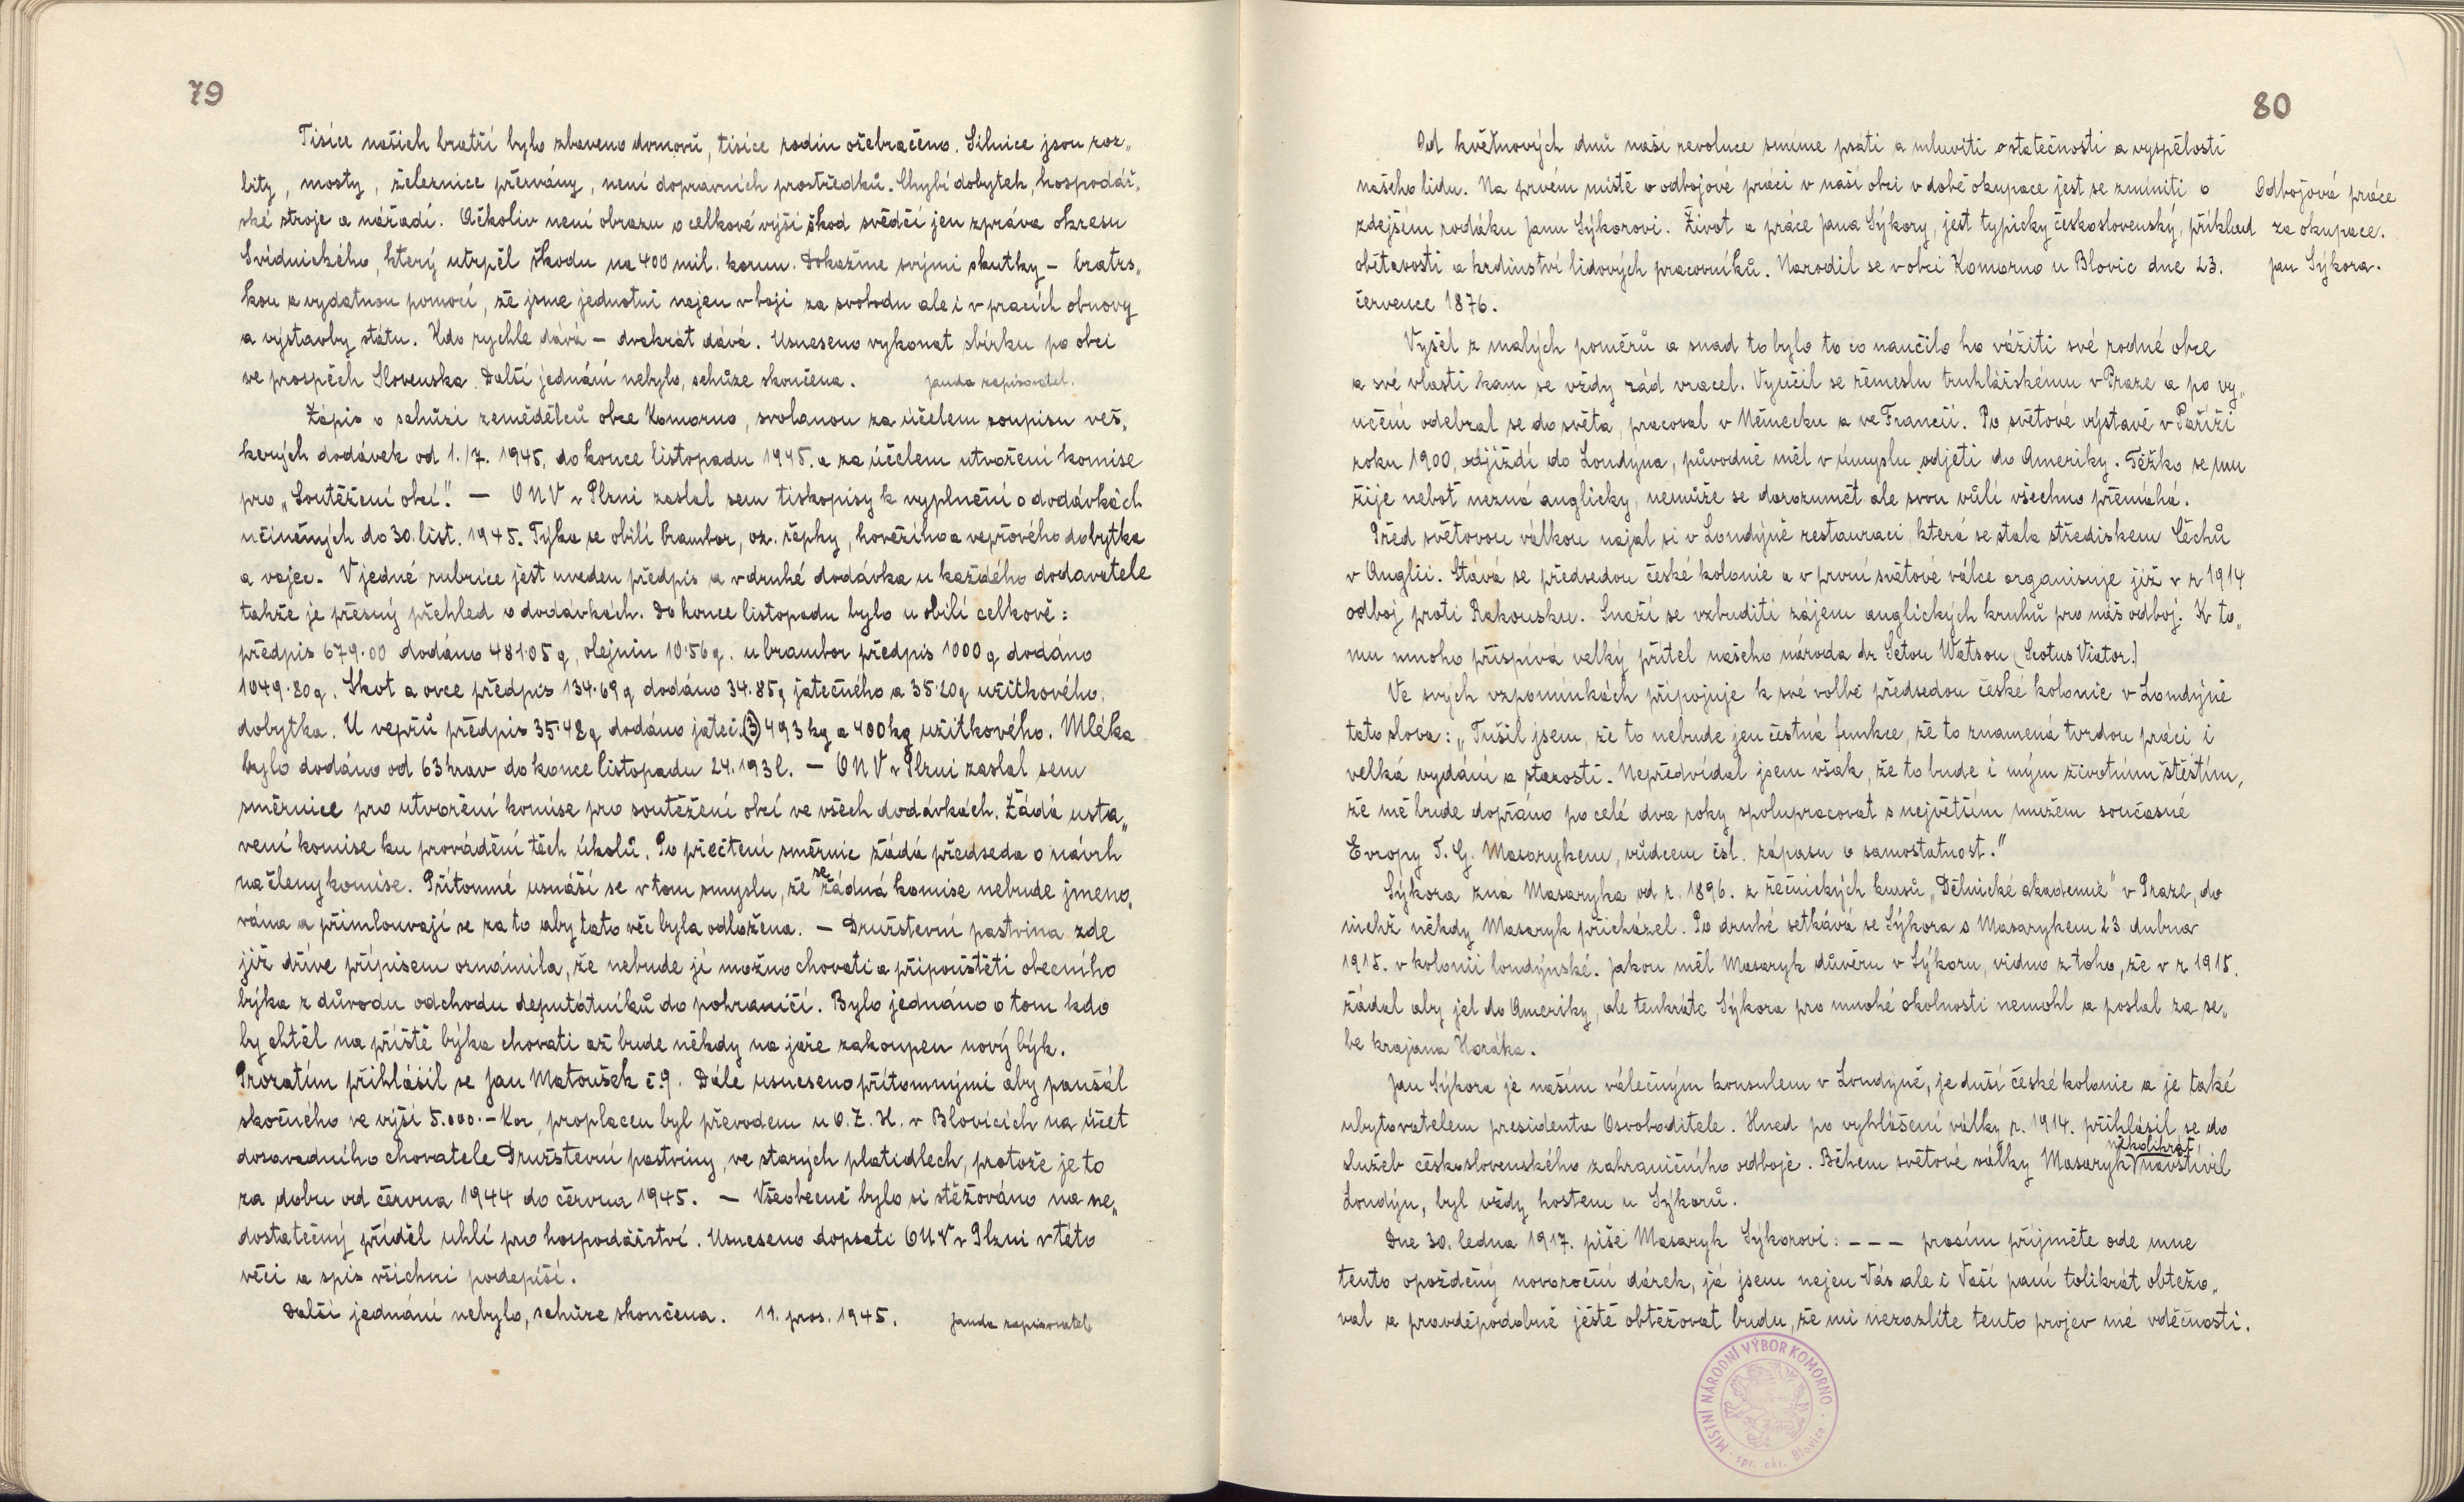 79
Tisíce našich bratří bylo zbaveno domovů, tisíce rodin ožebračeno. Silnice jsou roz„
bity, mosty, železnice přervány, není dopravních prostředků. Chybí dobytek, hospodář„
ské stroje a nářadí. Ačkoliv není obrazu o celkové výši škod svědčí jen zpráva okresu
Svidnického, který utrpěl škodu na 400 mil. korun. Dokažme svými skutky – bratrs„
kou a vydatnou pomocí, že jsme jednotni nejen v boji za svobodu ale i v pracích obnovy
a výstavby státu. Kdo rychle dává – dvakrát dává. Usneseno vykonat sbírku po obci
ve prospěch Slovenska. Další jednání nebylo, schůze skončena. Janda zapisovatel.
Zápis o schůzi zemědělců obce Komorno, svolanou za účelem soupisu veš„
kerých dodávek od 1./7. 1945, do konce listopadu 1945. a za účelem utvoření komise
pro „Soutěžení obcí“. — ONV v Plzni zaslal sem tiskopisy k vyplnění o dodávkách
učiněných do 30. list. 1945. Týká se obilí brambor, oz. řepky, hovězího a vepřového dobytka
a vajec. V jedné rubrice jest uveden předpis a v druhé dodávka u každého dodavatele
takže je přesný přehled o dodávkách. Do konce listopadu bylo u obilí celkově:
předpis 679·00 dodáno 481·05 q, olejnin 10·56 q. u brambor předpis 1000 q dodáno
1049·80 q. Skot a ovce předpis 134·69 q dodáno 34.85 q jatečného a 35·20 q užitkového
dobytka. U vepřů předpis 35·48 q dodáno jateč. (3) 493 kg a 400 kg užitkového. Mléka
bylo dodáno od 63 krav do konce listopadu 24.193 l. — ONV v Plzni zaslal sem
směrnice pro utvoření komise pro soutěžení obcí ve všech dodávkách. Žádá usta„
vení komise ku provádění těch úkolů. Po přečtení směrnic žádá předseda o návrh
na členy komise. Přítomné usnáší se v tom smyslu, že se žádná komise nebude jmeno„
vána a přimlouvají se za to aby tato věc byla odložena. — Družstevní pastvina zde
již dříve přípisem oznámila, že nebude jí možno chovati a připouštěti obecního
býka z důvodu odchodu deputátníků do pohraničí. Bylo jednáno o tom kdo
by chtěl na příště býka chovati až bude někdy na jaře zakoupen nový býk.
Prozatím přihlásil se Jan Matoušek č.9. Dále usneseno přítomnými aby paušál
skočného ve výši 5.000.– Kor, proplacen byl převodem u O.Z.H. v Blovicích na účet
dosavadního chovatele Družstevní pastviny, ve starých platidlech, protože je to
za dobu od června 1944 do června 1945. — Všeobecně bylo si stěžováno na ne„
dostatečný příděl uhlí pro hospodářství. Usneseno dopsati ONV v Plzni v této
věci a spis všichni podepíší.
Další jednání nebylo, schůze skončena. 11. pros. 1945. Janda zapisovatel
80
Od květnových dnů naší revoluce smíme psáti a mluviti o statečnosti a vyspělosti
našeho lidu. Na prvém místě o odbojové práci v naší obci v době okupace jest se zmíniti o
zdejším rodáku Janu Sýkorovi. Život a práce Jana Sýkory, jest typicky československý, příklad
obětavosti a hrdinství lidových pracovníků. Narodil se v obci Komorno u Blovic dne 23.
července 1876.
Odbojová práce
za okupace.
Jan Sýkora.
Vyšel z malých poměrů a snad to bylo to co naučilo ho vážiti své rodné obce
a své vlasti kam se vždy rád vracel. Vyučil se řemeslu truhlářskému v Praze a po vy„
učení odebral se do světa, pracoval v Německu a ve Francii. Po světové výstavě v Paříži
roku 1900, odjíždí do Londýna, původně měl v úmyslu odjeti do Ameriky. Těžko se mu
žije neboť nezná anglicky, nemůže se dorozumět ale svou vůlí všechno přemáhá.
Před světovou válkou najal si v Londýně restauraci, která se stala střediskem Čechů
v Anglii. Stává se předsedou české kolonie a v první světové válce organisuje již v r 1914
odboj proti Rakousku. Snaží se vzbuditi zájem anglických kruhů pro náš odboj. K to„
mu mnoho přispívá velký přítel našeho národa dr Seton Watson (Scotus Viator.)
Ve svých vzpomínkách připojuje k své volbě předsedou české kolonie v Londýně
tato slova: „Tušil jsem, že to nebude jen čestná funkce, že to znamená tvrdou práci i
velká vydání a starosti. Nepředvídal jsem však, že to bude i mým životním štěstím,
že mě bude dopřáno po celé dva roky spolupracovat s největším mužem současné
Evropy T. G. Masarykem, vůdcem čsl. zápasu o samostatnost.“
Sýkora zná Masaryka od r. 1896. z řečnických kursů „Dělnické akademie“ v Praze, do
nichž někdy Masaryk přicházel. Po druhé setkává se Sýkora s Masarykem 23. dubna
1915. v kolonii londýnské. Jakou měl Masaryk důvěru v Sýkoru, vidno z toho, že v r 1915.
žádal aby jel do Ameriky, ale tenkráte Sýkora pro mnohé okolnosti nemohl a poslal za se„
be krajana Horáka.
Jan Sýkora je naším válečným konsulem v Londýně, je duší české kolonie a je také
ubytovatelem presidenta Osvoboditele. Hned po vyhlášení války r. 1914. přihlásil se do
služeb československého zahraničního odboje. Během světové války Masaryk několikrát navštívil
Londýn, byl vždy hostem u Sýkorů.
Dne 30. ledna 1917. píše Masaryk Sýkorovi: – – – prosím přijměte ode mne
tento opožděný novoroční dárek, já jsem nejen Vás ale i Vaší paní tolikrát obtěžo„
val a pravděpodobně ještě obtěžovat budu, že mi nezazlíte tento projev mé vděčnosti.
MÍSTNÍ NÁRODNÍ VÝBOR KOMORNO
spr. okr. Blovice